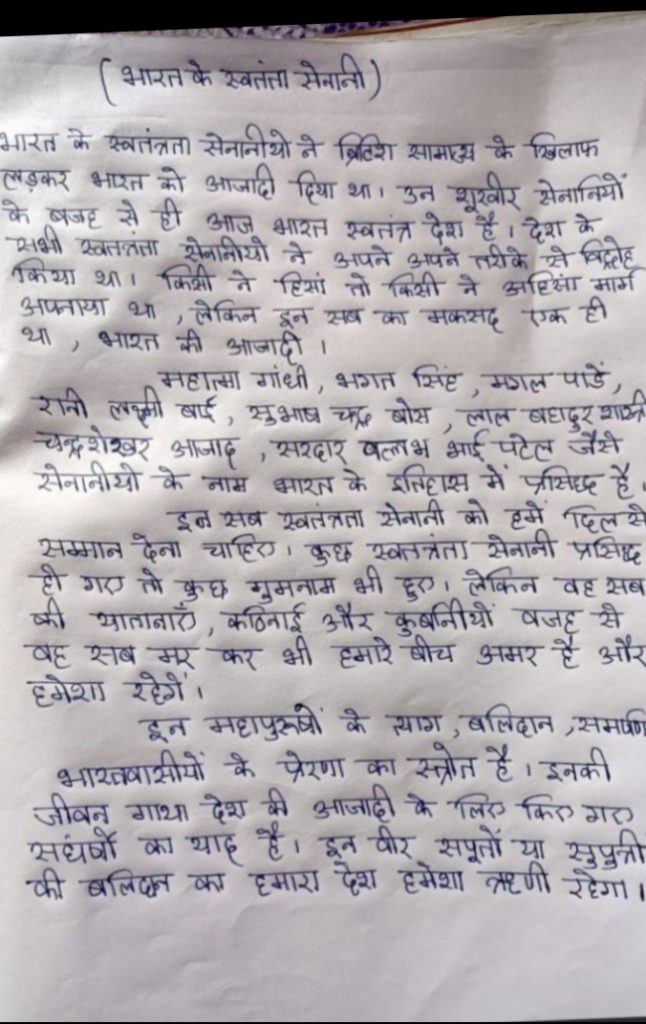 (भारत के स्वतंता सेनानी)
भारत के स्वतंत्रता सेनानीयो ने ब्रिटिश सामाज्य के खिलाफ
लड़कर भारत को आजादी दिया था। उन शूरवीर सेनानियों
के वजह से ही आज भारत स्वतंत्र देश है। देश के
सभी स्वतन्त्रता सेनानीयो ने अपने अपने तरीके से विद्रोह
किया था। किसी ने हिसां तो किसी ने अहिसां मार्ग
अपनाया था, लेकिन इन सब का मकसद एक ही
था, भारत की आजादी।
महात्मा गांधी, भगत सिंह, मगल पाडें,
रानी लक्ष्मी बाई, सुभाष चन्द्र बोस, लाल बहादुर शास्त्री
चन्द्रशेखर आजाद, सरदार वल्लभ भाई पटेल जैसे
सेनानीयो के नाम भारत के इतिहास में प्रसिध्द है।
इन सब स्वतंत्रता सेनानी को हमें दिल से
सम्मान देना चाहिए। कुछ स्वतन्त्रता सेनानी प्रसिध्द
हो गए तो कुछ गुमनाम भी हुए। लेकिन वह सब
की यातानाएँ, कठिनाई और कुर्बानीयों वजह से
वह सब मर कर भी हमारे बीच अमर है और
हमेशा रहेगें।
इन महापुरुषों के त्याग, बलिदान, समर्पण
भारतवासीयों के प्रेरणा का स्त्रोत है। इनकी
जीवन गाथा देश की आजादी के लिए किए गए
सघंर्षो का याद है। इन वीर सपूतों या सुपुत्री
की बलिदान का हमारा देश हमेशा ऋणी रहेगा।